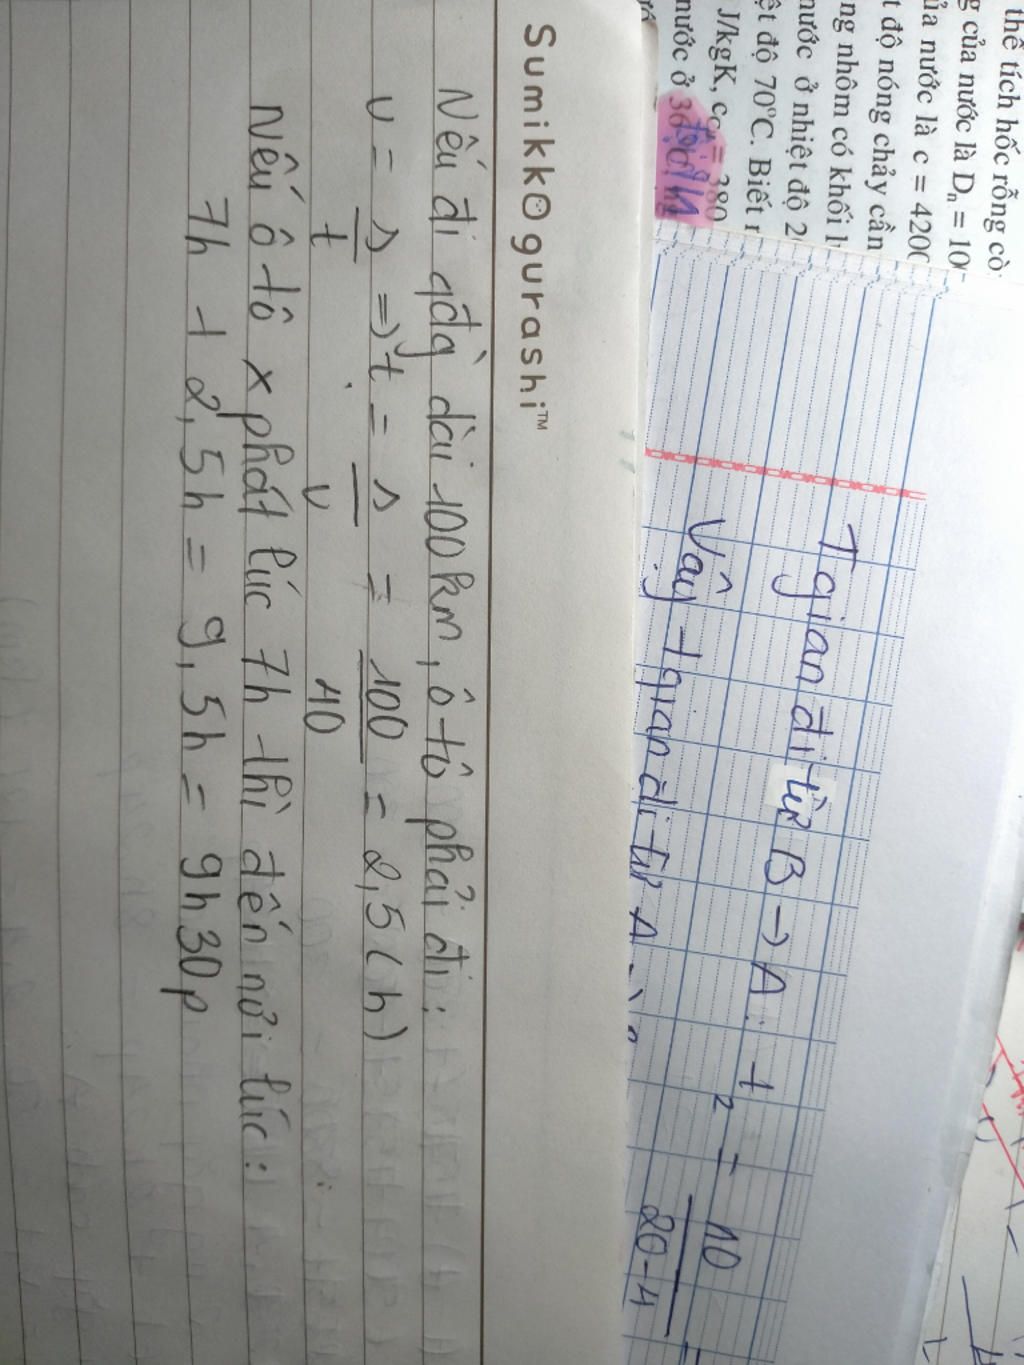 thể tích hốc rỗng cò
g của nước là Dₙ = 10
ủa nước là c = 4200
t độ nóng chảy cần
ng nhôm có khối l
nước ở nhiệt độ 2
ệt độ 70°C. Biết r
J/kgK, = 380
nước ở 36
T gian đi từ B → A: t₂ = 10 / 20-4 =
Vậy t gian đi từ A →
Sumikko gurashi™
Nếu đi qđg dài 100km, ô tô phải đi:
v = s/t => t = s/v = 100/40 = 2,5 (h)
Nếu ô tô x phát lúc 7h thì đến nơi lúc:
7h + 2,5h = 9,5h = 9h30p